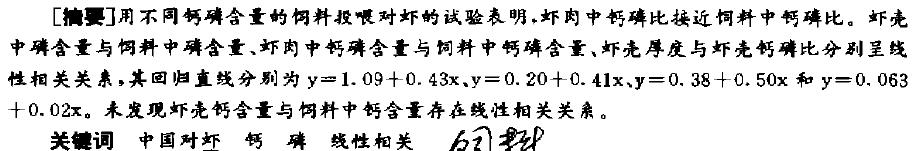 [摘要]用不同钙磷含量的饲料投喂对虾的试验表明,虾肉中钙磷比接近饲料中钙磷比。虾壳
中磷含量与饲料中磷含量、虾肉中钙磷含量与饲料中钙磷含量、虾壳厚度与虾壳钙磷比分别呈线
性相关关系,其回归直线分别为y=1.09+0.43x、y=0.20+0.41x、y=0.38+0.50x和y=0.063
+0.02x。未发现虾壳钙含量与饲料中钙含量存在线性相关关系。
关键词 中国对虾 钙 磷 线性相关 饲料